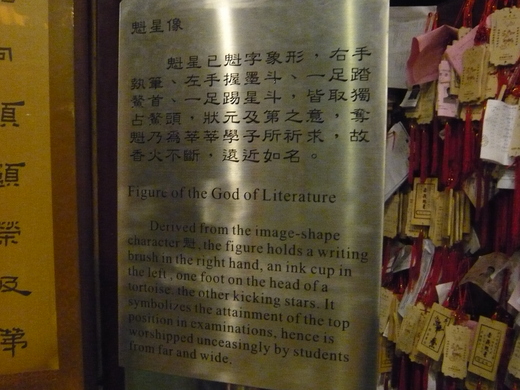 魁星像
魁星已魁字象形，右手
執筆、左手握墨斗、一足踏
鰲首、一足踢星斗，皆取獨
占鰲頭，狀元及第之意，奪
魁乃為莘莘學子所祈求，故
香火不斷，遠近如名。
Figure of the God of Literature
Derived from the image-shape
character 魁, the figure holds a writing
brush in the right hand, an ink cup in
the left, one foot on the head of a
tortoise, the other kicking stars. It
symbolizes the attainment of the top
position in examinations, hence is
worshipped unceasingly by students
from far and wide.